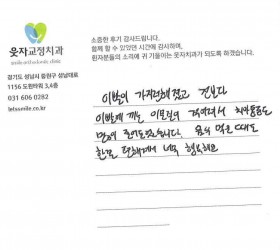 웃자교정치과
smile orthodontic clinic
경기도 성남시 중원구 성남대로
1156 도원빌딩 3,4층
031 606 0282
letssmile.co.kr
소중한 후기 감사드립니다.
함께 할 수 있었던 시간에 감사하며,
환자분들의 소리에 귀 기울이는 웃자치과가 되도록 하겠습니다.
이빨이 가지런해졌고 전보다
이빨에 끼는 이물질이 적어져서 치아통증도
많이 줄어들었습니다. 음식 먹을때도
한결 편해져서 너무 행복해요